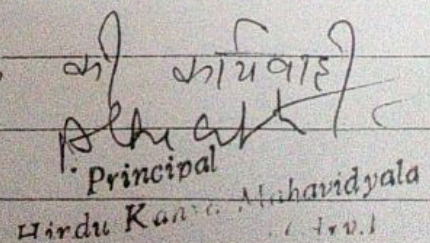 की कार्यवाही
Principal
Hindu Kanya Mahavidyala